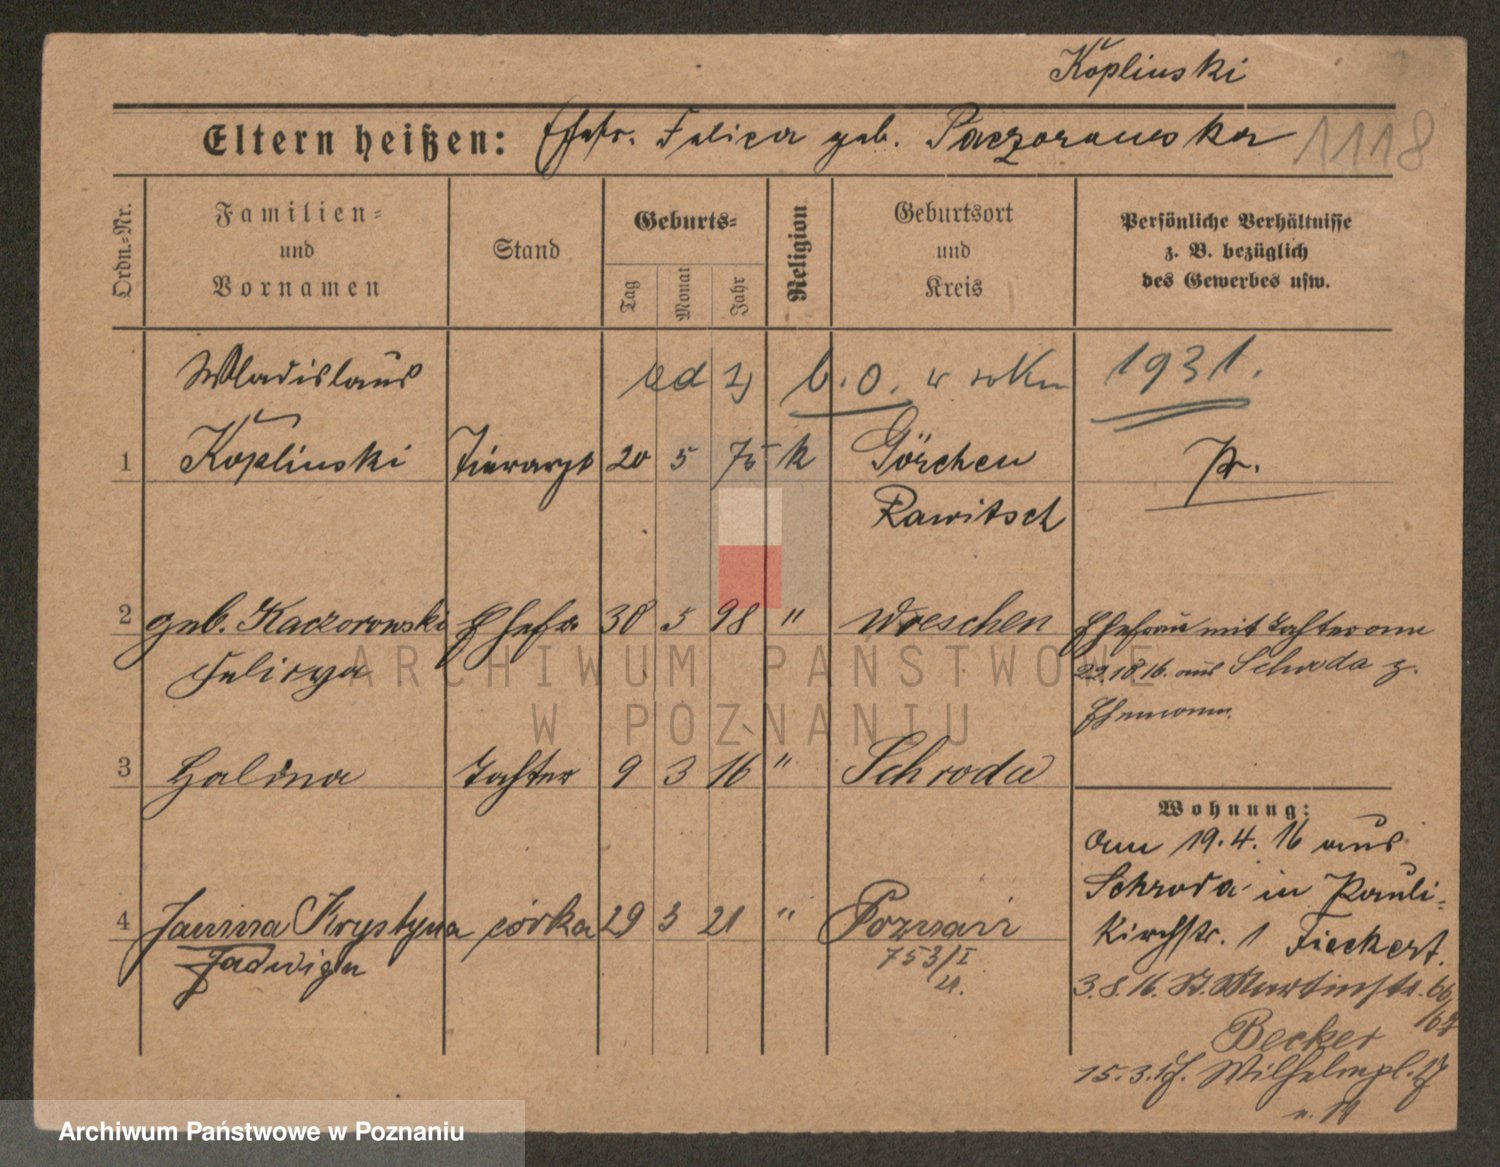 Koplinski
Eltern heißen: Ehefr. Felicia geb. Paczorowska 1118
Ordn.-Nr.
Familien-
und
Vornamen
Stand
Geburts-
Tag
Monat
Jahr
Religion
Geburtsort
und
Kreis
Persönliche Verhältnisse
z. B. bezüglich
des Gewerbes usw.
Wladislaus b. o. w 1931.
1 Koplinski Tierarzt 20 5 75 k Görchen Pr.
Rawitsch
2 geb. Kaczorowski Ehefr. 30 5 98 " Wreschen Ehefrau mit Tochter am
Felicya 22.10.16. aus Schroda z.
Ehemann.
3 Halina Tochter 9 3 16 " Schroda
Wohnung:
am 19.4.16 aus
Schroda in Pauli-
kirchstr. 1 Fieckert.
4 Janina Krystyna córka 29 3 21 " Poznań
Jadwiga
753/I
21.
3.8.16. St. Martinstr. 66/67
Becker
15.3.17. Wilhelmpl. 17
ARCHIWUM PAŃSTWOWE
W POZNANIU
Archiwum Państwowe w Poznaniu